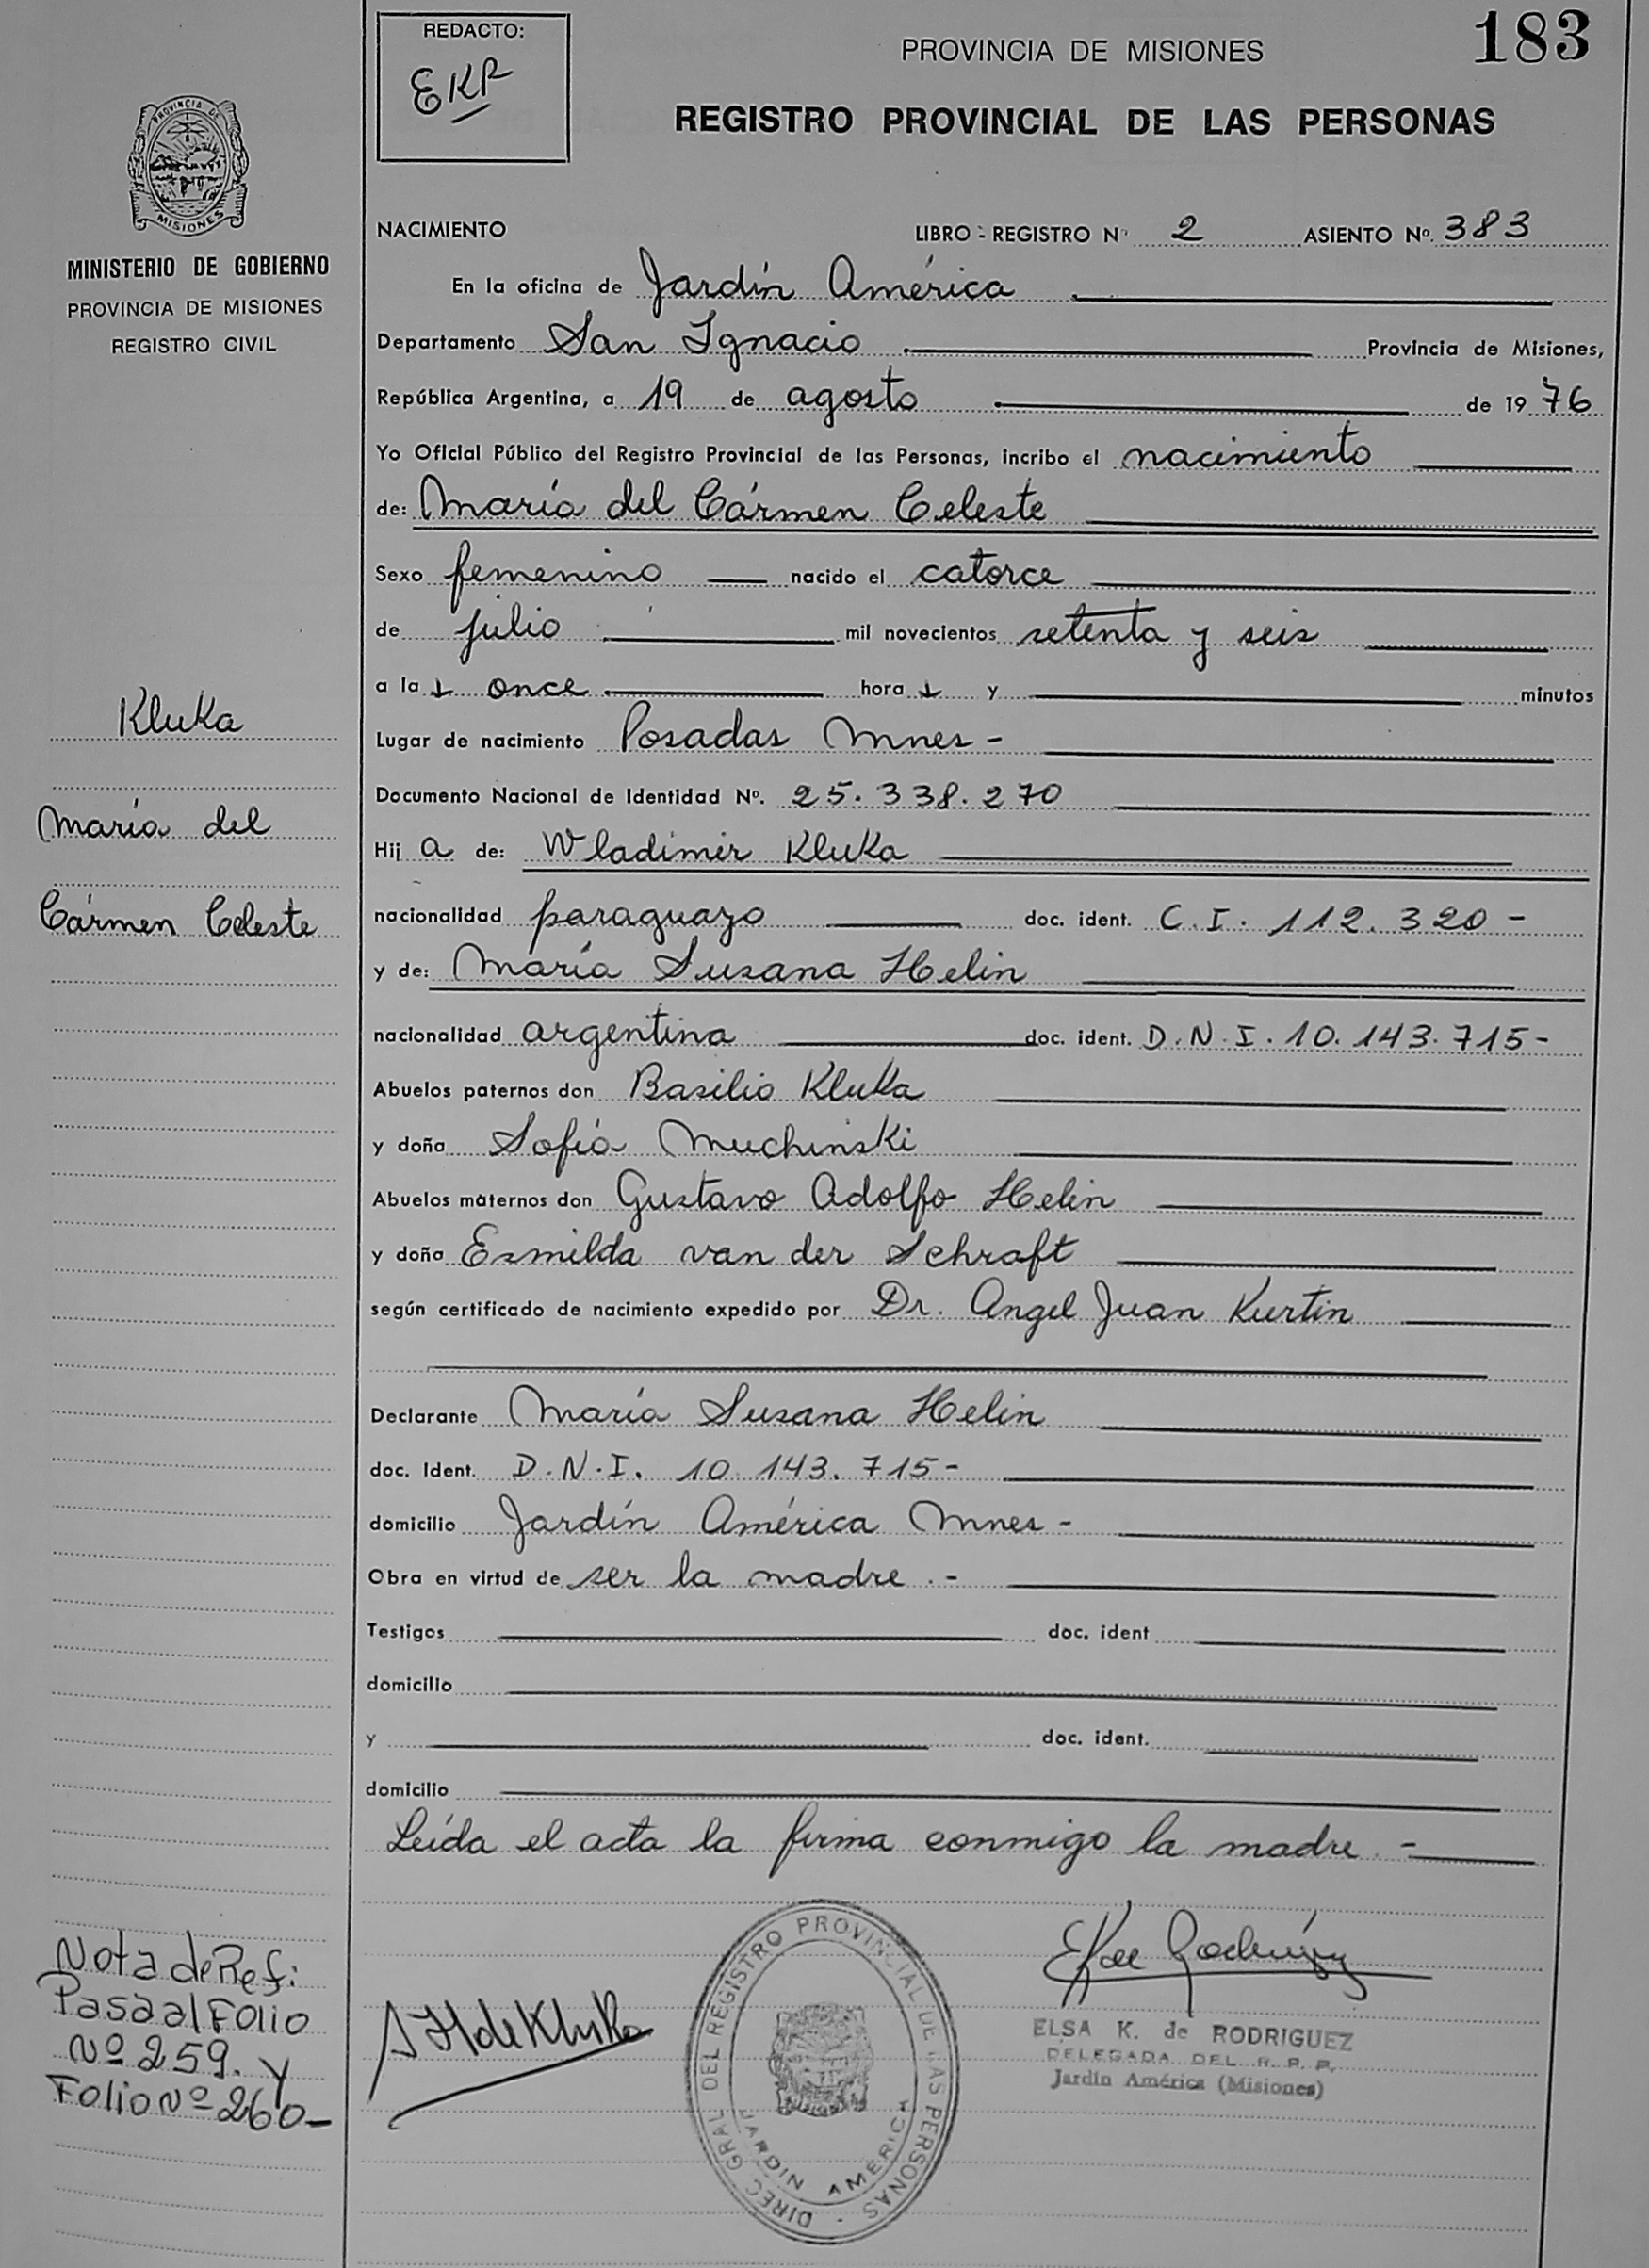 REDACTO:
EKR
PROVINCIA DE MISIONES
183
REGISTRO PROVINCIAL DE LAS PERSONAS
PROVINCIA DE
MISIONES
MINISTERIO DE GOBIERNO
PROVINCIA DE MISIONES
REGISTRO CIVIL
NACIMIENTO LIBRO - REGISTRO Nº 2 ASIENTO Nº. 383
En la oficina de Jardín América
Departamento San Ignacio Provincia de Misiones,
República Argentina, a 19 de agosto de 19 76
Yo Oficial Público del Registro Provincial de las Personas, incribo el nacimiento
de: María del Cármen Celeste
Sexo femenino nacido el catorce
de julio mil novecientos setenta y seis
a la s once hora s y minutos
Lugar de nacimiento Posadas Mnes -
Documento Nacional de Identidad Nº. 25.338.270
Hij a de: Wladimir Kluka
nacionalidad paraguayo doc. ident. C.I. 112.320 -
y de: María Susana Helin
nacionalidad argentina doc. ident. D.N.I. 10.143.715-
Abuelos paternos don Basilio Kluka
y doña Sofía Muchinski
Abuelos maternos don Gustavo Adolfo Helin
y doña Esmilda van der Schraft
según certificado de nacimiento expedido por Dr. Angel Juan Kurtin
Declarante María Susana Helin
doc. Ident. D.N.I. 10.143.715-
domicilio Jardín América Mnes -
Obra en virtud de ser la madre .-
Testigos doc. ident
domicilio
y doc. ident.
domicilio
Leída el acta la firma conmigo la madre. -
Kluka
María del
Cármen Celeste
Nota de Ref:
Pasa al Folio
Nº 259. y
Folio Nº 260-
S H de Kluka
DIREC. GRAL DEL REGISTRO PROVINCIAL DE LAS PERSONAS -
JARDIN AMERICA
EK de Rodríguez
ELSA K. de RODRIGUEZ
DELEGADA DEL R. P. P.
Jardín América (Misiones)